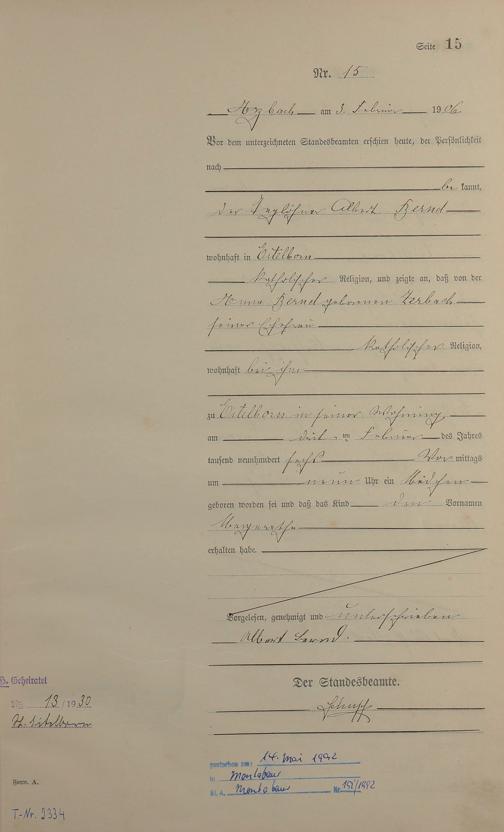 Seite 15
Nr. 15
Arzbach am 3. Februar 1906
Vor dem unterzeichneten Standesbeamten erschien heute, der Persönlichkeit
nach
be kannt,
der Taglöhner Albert Bernd
wohnhaft in Eitelborn
katholischer Religion, und zeigte an, daß von der
Anna Bernd geborenen Zerbach
seiner Ehefrau
katholischer Religion,
wohnhaft bei ihm
zu Eitelborn in seiner Wohnung
am drit ten Februar des Jahres
tausend neunhundert sechs Vor mittags
um neun Uhr ein Mädchen
geboren worden sei und daß das Kind den Vornamen
Margarethe
erhalten habe.
Vorgelesen, genehmigt und unterschrieben
Albert Bernd.
Der Standesbeamte.
Geheiratet
Nr. 13/1930
St. Eitelborn
gestorben am: 14. Mai 1992
in Montabaur
St. A. Montabaur Nr. 151/1992
Form. A.
T-Nr. 2334